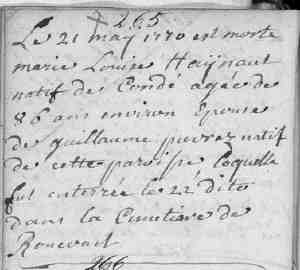 265
Le 21 may 1770 est morte
marie Louise Haÿnaut
natif de Condé agée de
86 ans environ Epouse
de guillaume natif
de cette paroisse Laquelle
fut enterrée le 22 dito
dans la Cimetiere de
Roucourt
266